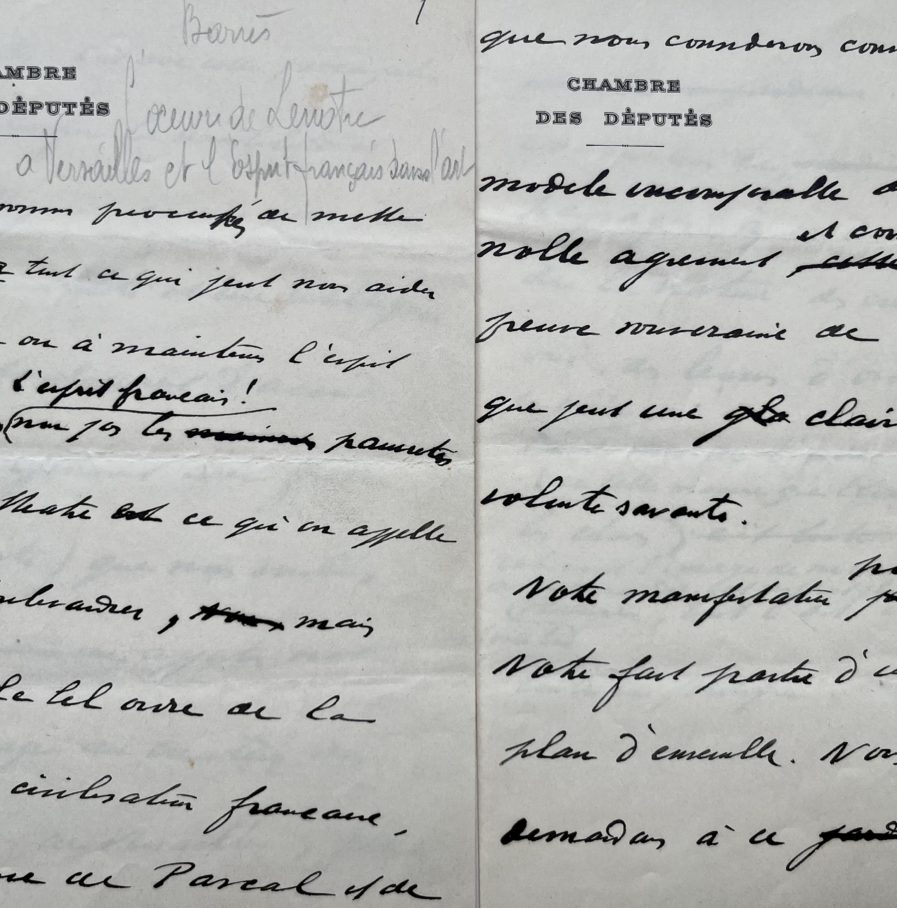 Barrès
l'œuvre de Lenotre
a Versailles et l'Esprit français dans l'art
AMBRE
DÉPUTÉS
de mettre
tout ce qui peut nous aider
ou à maintenir l'esprit
L'esprit francais!
non pas les pauvretés
theatre ce qui on appelle
mais
Le bel ordre de la
civilisation francaise,
de Pascal et de
que nous considerons com
CHAMBRE
DES DÉPUTÉS
modele incomparable d
noble agrement et con
preuve souveraine de
que peut une clair
volonte savante.
Notre manifestation
Notre fait partie d'u
plan d'ensemble. Nou
demandons à ce